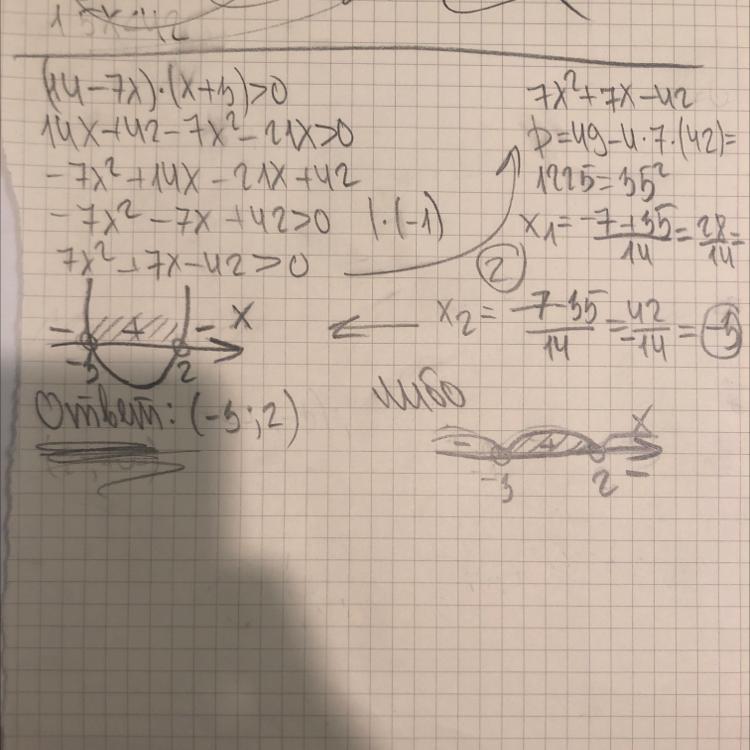 (14-7x)·(x+3)>0
14x+42-7x²-21x>0
-7x²+14x-21x+42
-7x²-7x+42>0 |·(-1)
7x²+7x-42>0
7x²+7x-42
D=49-4·7·(42)=
1225=35²
x₁=-7+35/14=28/14=
2
x₂=-7-35/14=-42/14=-3
- + - x
-3 2
Ответ: (-3;2)
либо
- + - x
-3 2